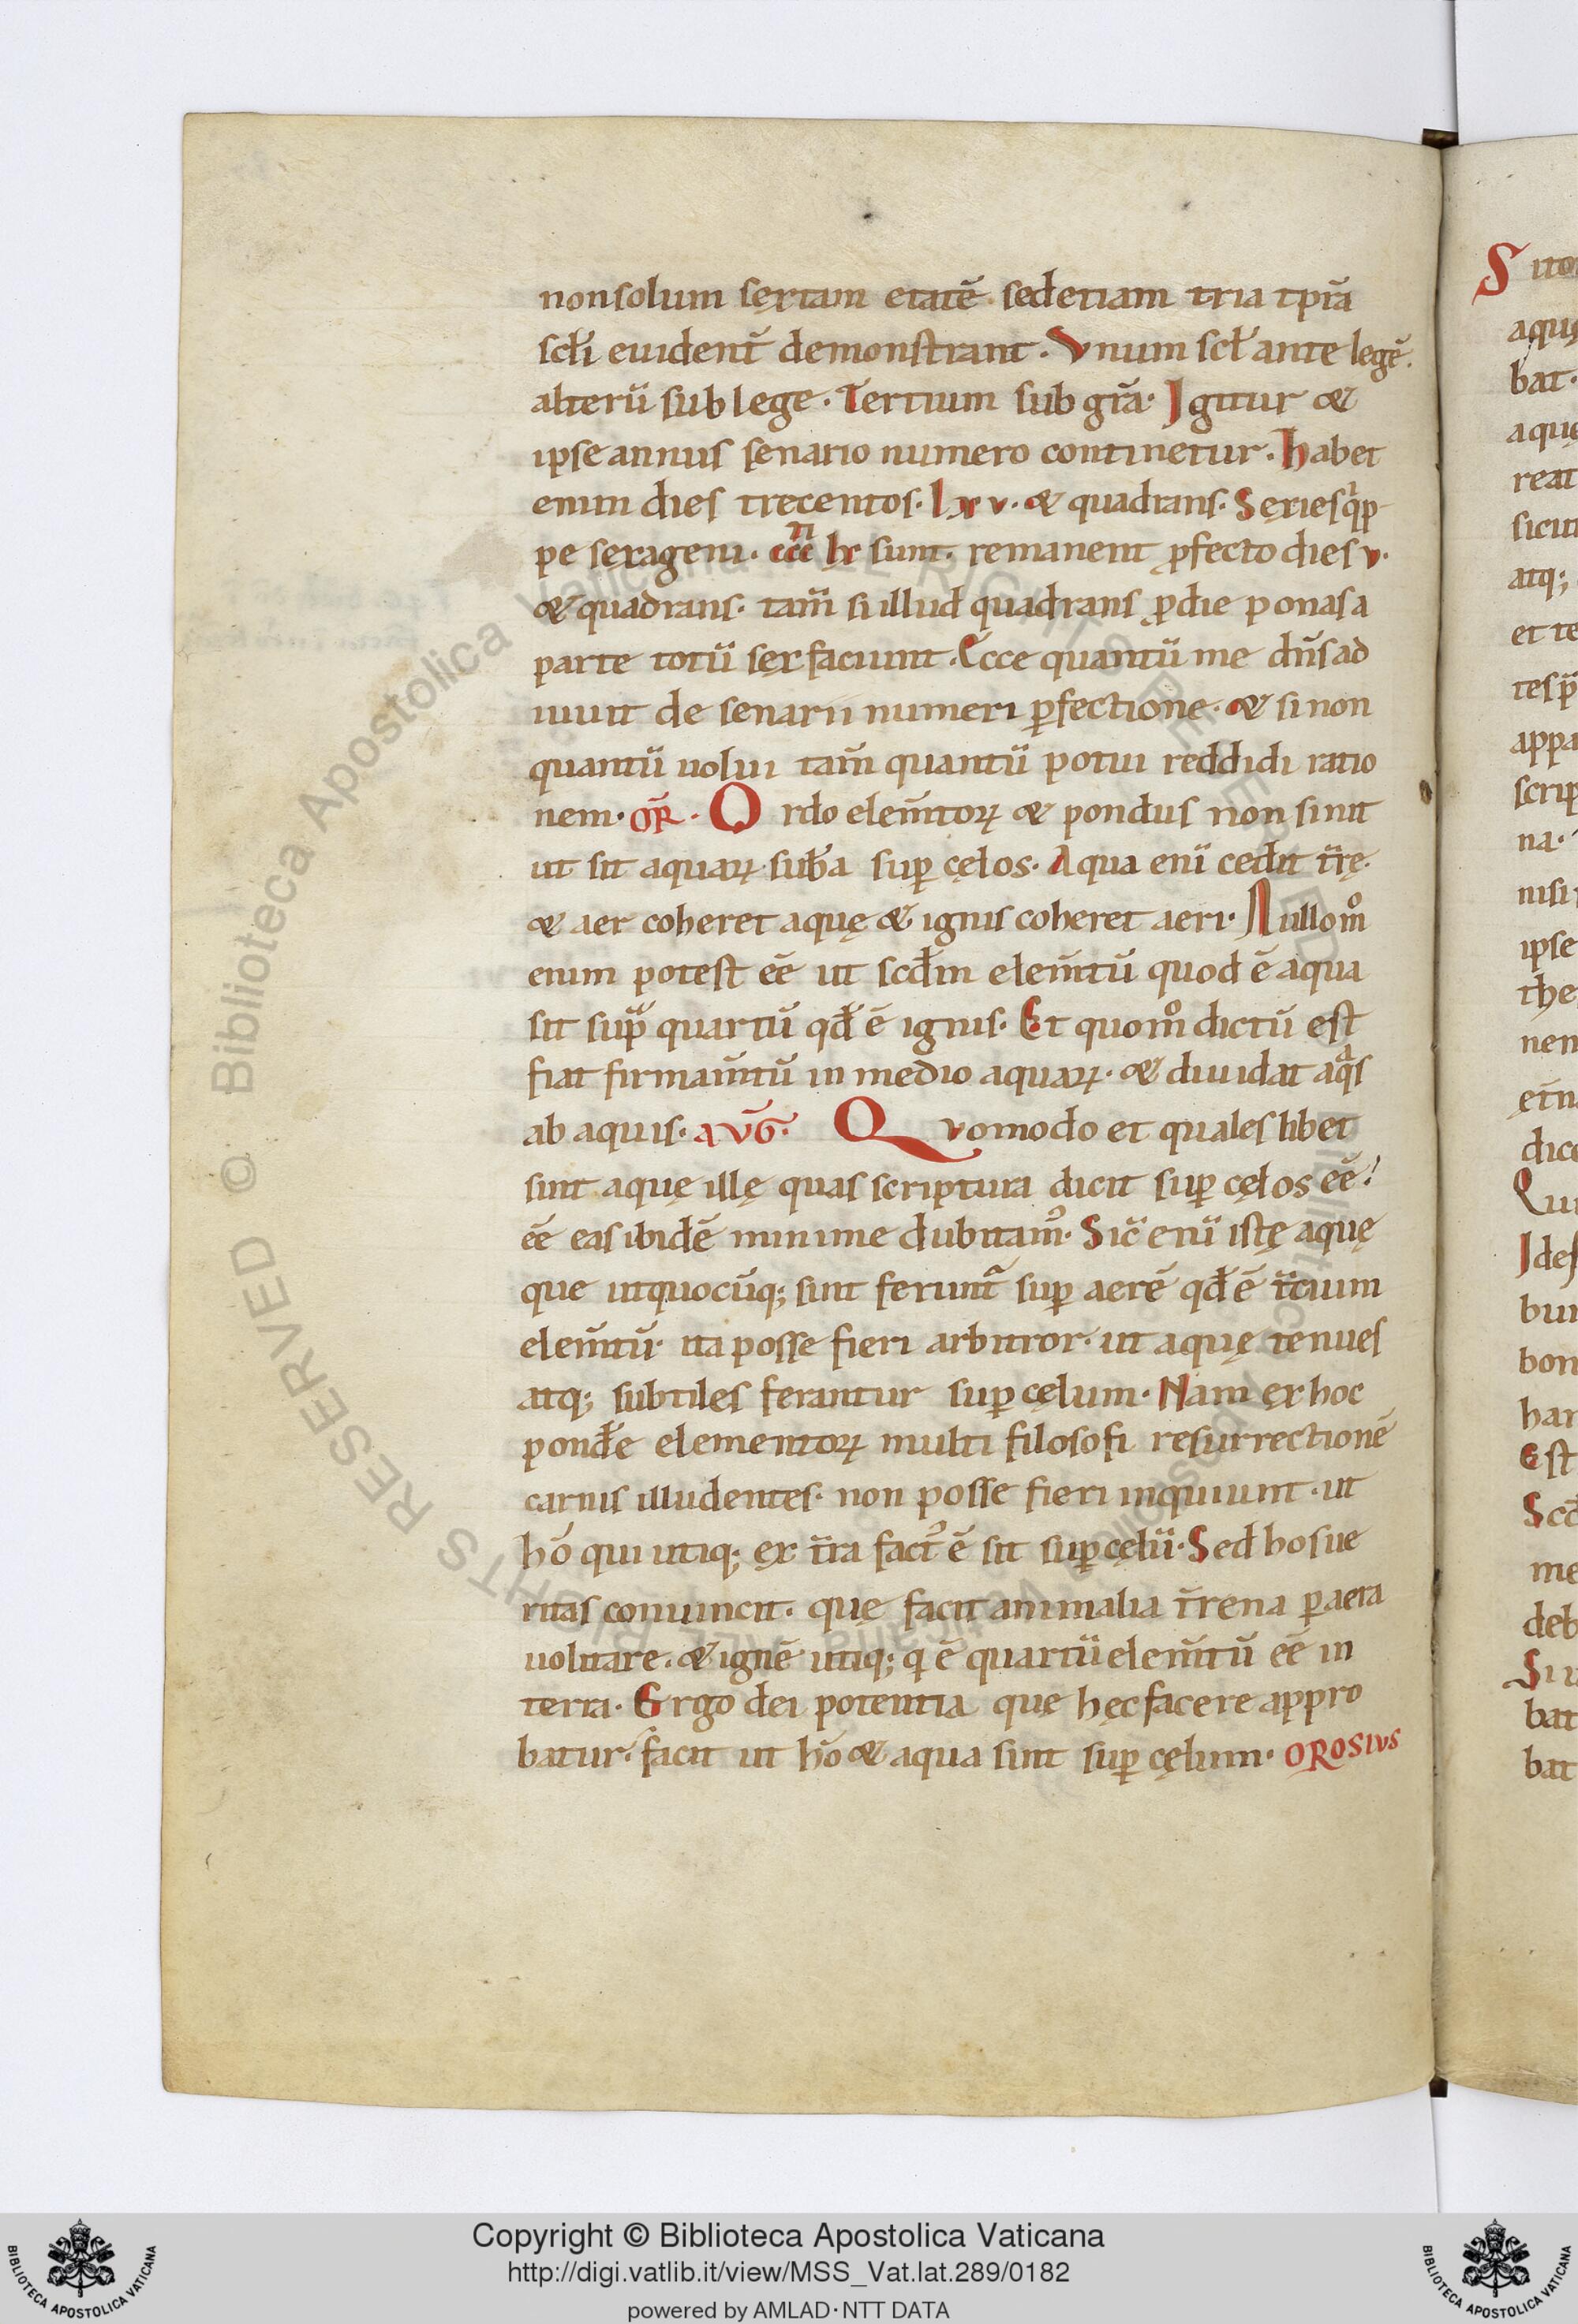 non solum sextam etatē. sed etiam tria tp̄ra
scl̄i euident̄ demonstrant. Vnum scl̄ ante legē.
alterū sub lege. Tertium sub gr̄a. Igitur &
ipse annus senario numero continetur. Habet
enim dies trecentos. lxv. & quadrans. Sexies qͥp
pe sexageni. ccc lx sunt. remanent ꝓfecto dies v.
& quadrans. tam̄ si illud quadrans ꝓ die ponas a
parte totū sex faciunt. Ecce quantū me dn̄s ad
iuuit de senarii numeri ꝑfectione. & si non
quantū uolui tam̄ quantū potui reddidi ratio
nem. OR̄. Ordo elem̄torꝝ & pondus non sinit
ut sit aquarꝝ sub̄a suꝑ cęlos. Aqua eni̅ cedit tr̄ę.
& aer coheret aquę & ignis coheret aeri. Nullomͦ
enim potest eē ut scd̄m elem̄tū quod ē aqua
sit sup̄ quartū qd̄ ē ignis. Et quomͦ dictū est
fiat firmam̄tū in medio aquarꝝ. & diuidat aqͣs
ab aquis. AVḠ. Quomodo et quales libet
sint aquę illę quas scriptura dicit suꝑ cęlos eē.
eē eas ibidē minime dubitam᷒. Sic̄ eni̅ istę aquę
que utquocūq; sint ferunt᷑ suꝑ aerē qd̄ ē t̄cium
elem̄tū. ita posse fieri arbitror. ut aquę tenues
atq; subtiles ferantur suꝑ cęlum. Nam ex hoc
pond̄e elementorꝝ multi filosofi resurrectionē
carnis illudentes. non posse fieri inquiunt. ut
hō qui utiq; ex tr̄a fact᷒ ē sit suꝑ cęlū. Sed hos ue
ritas conuincit. quę facit animalia tr̄rena ꝑ aera
uolitare. & ignē utiq; q ē quartū elem̄tū eē in
terra. Ergo dei potentia quę hęc facere appro
batur. facit ut hō & aqua sint suꝑ cęlum. OROSIVS
S
aquę
bat.
aquę
reat
sicut
atq;
et te
appa
scrip
na.
nisi
ipse
the
nem
dico
Ides
bon
har
Est
me
deb
bat
bat
Copyright © Biblioteca Apostolica Vaticana
http://digi.vatlib.it/view/MSS_Vat.lat.289/0182
powered by AMLAD·NTT DATA
BIBLIOTECA APOSTOLICA VATICANA
BIBLIOTECA APOSTOLICA VATICANA
© Biblioteca Apostolica Vaticana ALL RIGHTS RESERVED
© Biblioteca Apostolica Vaticana ALL RIGHTS RESERVED